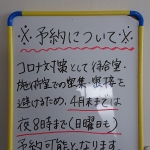 ※予約について※
コロナ対策として待合室・
施術室での密集・密接を
避けるため、4月末までは
夜8時まで(日曜日も)
予約可能となります